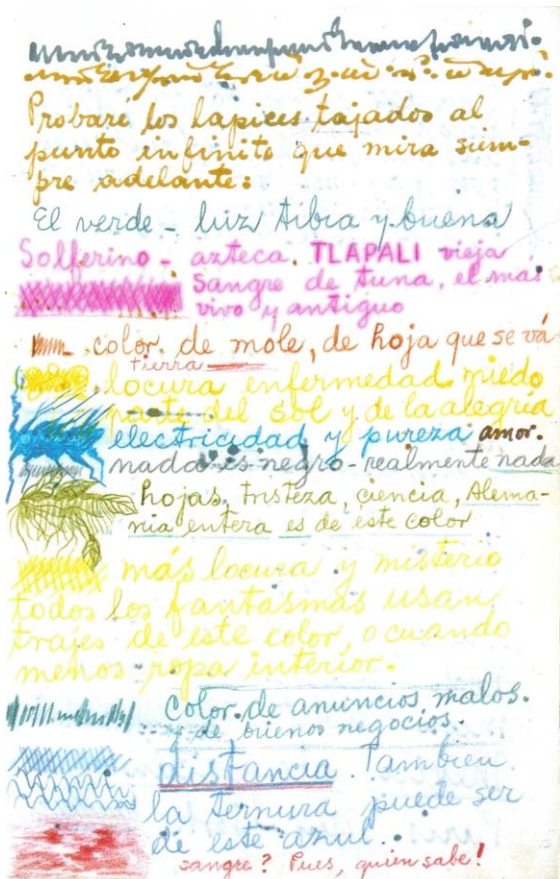 Probaré los lápices tajados al
punto infinito que mira siem-
pre adelante:
El verde - luz tibia y buena
Solferino - azteca. TLAPALI vieja
sangre de tuna, el más
vivo y antiguo
color de mole, de hoja que se vá
tierra
locura enfermedad miedo
parte del sol y de la alegría
electricidad y pureza amor.
nada es negro - realmente nada
hojas, tristeza, ciencia, Alema-
nia entera es de este color
más locura y misterio
todos los fantasmas usan
trajes de este color, o cuando
menos ropa interior.
color de anuncios malos.
y de buenos negocios.
distancia. Tambien
la ternura puede ser
de este azul.
sangre? Pues, quien sabe!